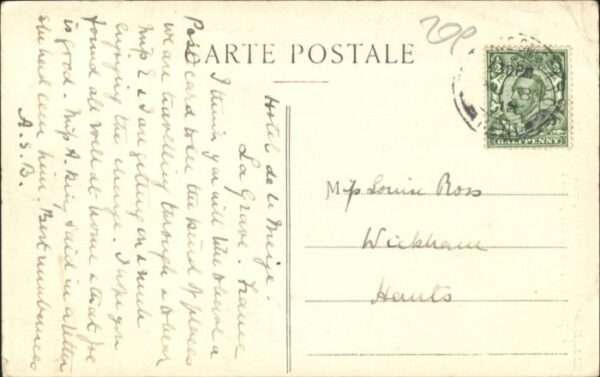 CARTE POSTALE
20p
HALFPENNY
Hotel de la Meige.
La Grave. France
I think you will like to have a
Post card to see the kind of places
we are travelling through &
Miss & I are getting on & much
enjoying the change. I hope you
found all well at home & that Joe
is good. Miss A. King said in a letter
she had seen him. Best remembrances
A.S.B.
Miss Louise Ross
Wickham
Hants